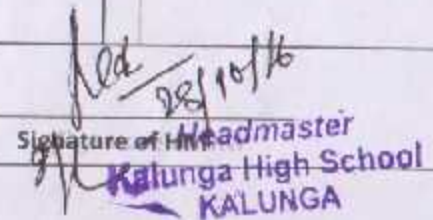 28/10/16
Signature of HM
Headmaster
Kalunga High School
KALUNGA